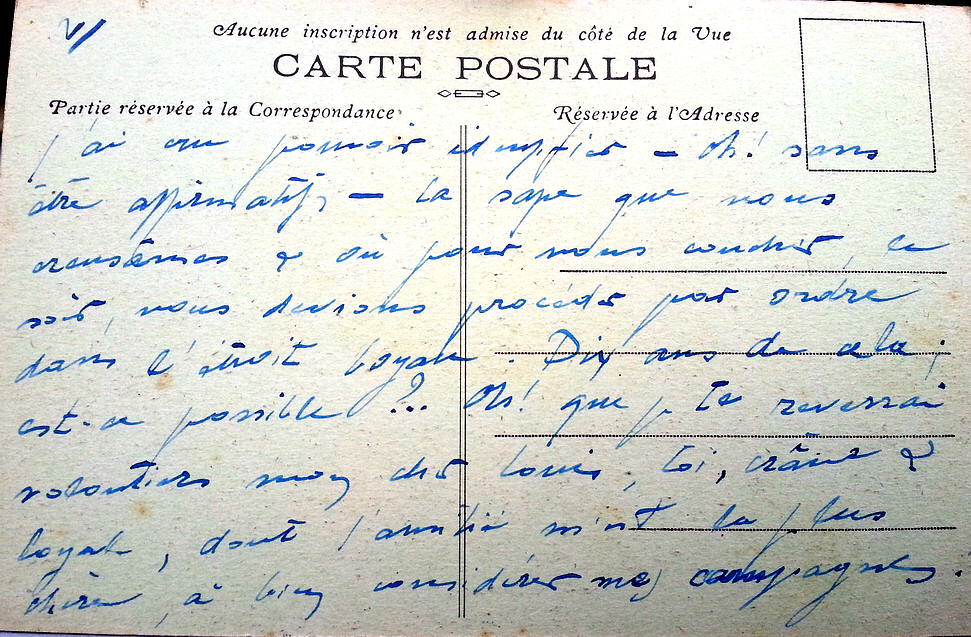 V/
Aucune inscription n'est admise du côté de la Vue
CARTE POSTALE
Partie réservée à la Correspondance
Réservée à l'Adresse
J'ai cru pouvoir identifier – oh! sans
être affirmatif, – la sape que nous
creusâmes & où pour nous coucher, le
soir, nous devions procéder par ordre
dans l'étroit boyau. Dix ans de cela;
est-ce possible ?.. Oh! que je te reverrai
volontiers mon cher Louis, toi, crâne &
loyal, dont l'amitié m'est la plus
chère, à bien considérer mes campagnes.